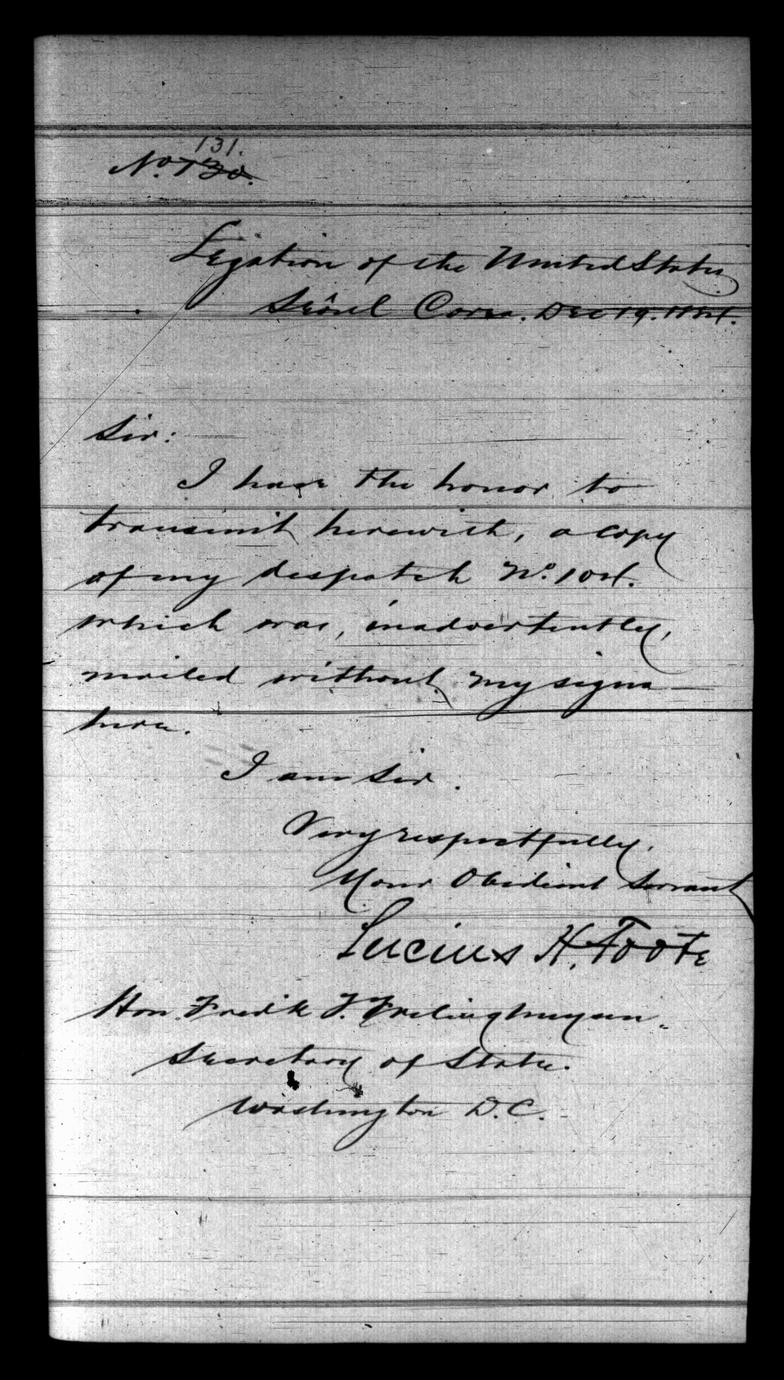 131.
No. 130.
Legation of the United States
Seoul Corea. Dec 19. 1884.
Sir:
I have the honor to
transmit herewith, a copy
of my despatch No. 104.
which was, inadvertently,
mailed without my signa-
ture.
I am Sir.
Very respectfully.
Your Obedient Servant
Lucius H. Foote
Hon. Fredk T. Frelinghuysen.
Secretary of State.
Washington D.C.